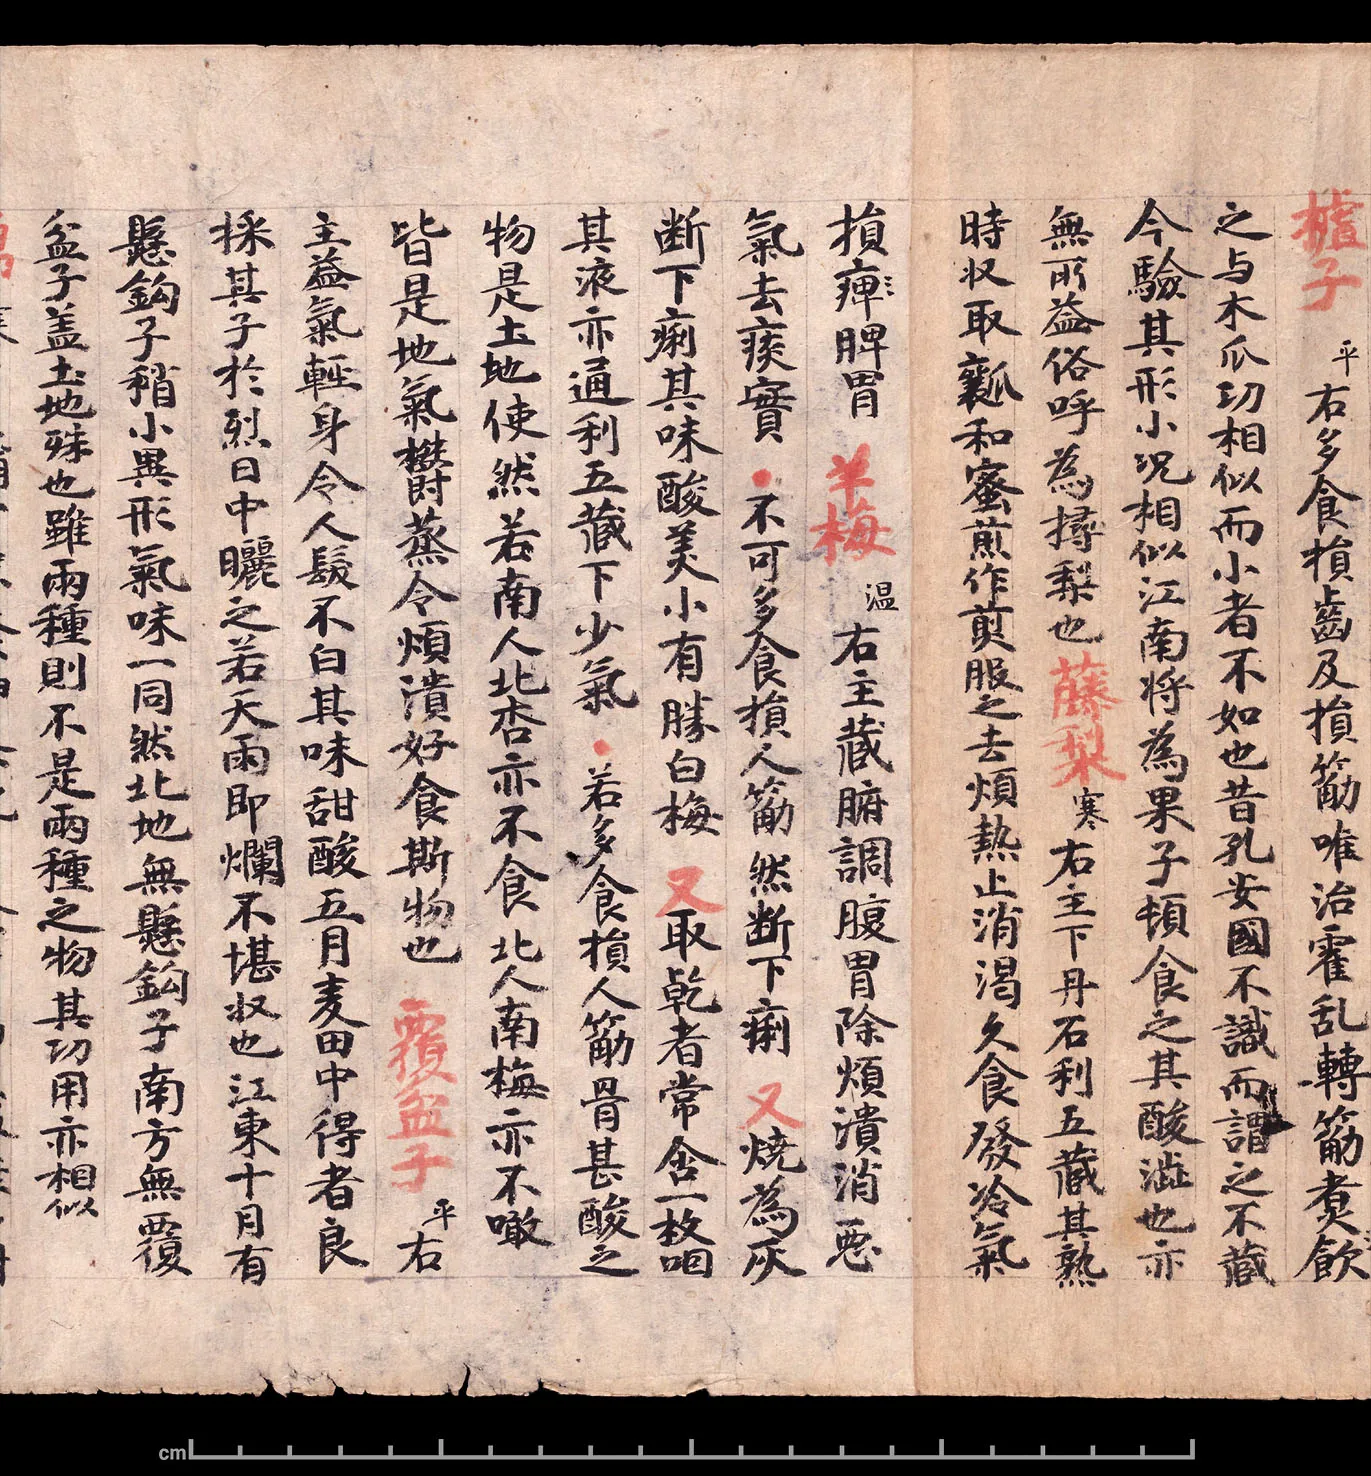 樝子平右多食損齒及損筋唯治霍乱轉筋煑飲
之与木爪功相似而小者不如也昔孔安國不識而謂之不藏
今驗其形小况相似江南将為果子頓食之其酸澁也亦
無所益俗呼為㯆梨也藤梨寒右主下丹石利五藏其熟
時収取瓤和蜜煎作煎服之去煩熱止消渴久食發冷氣
損痺脾胃羊梅温右主藏腑調腹胃除煩潰消惡
氣去痰實不可多食損人筋然断下痢又焼為灰
断下痢其味酸美小有勝白梅又取乾者常含一枚咽
其液亦通利五藏下少氣若多食損人筋骨甚酸之
物是土地使然若南人北杏亦不食北人南梅亦不噉
皆是地氣欝蒸令煩潰好食斯物也覆盆子平右
主益氣輕身令人髮不白其味甜酸五月麦田中得者良
採其子於烈日中曬之若天雨即爛不堪収也江東十月有
懸鈎子稍小異形氣味一同然北地無懸鈎子南方無覆
盆子盖土地殊也雖兩種則不是兩種之物其功用亦相似